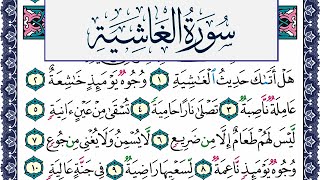 سُورَةُ الْغَاشِيَةِ
هَلْ أَتَىٰكَ حَدِيثُ ٱلْغَٰشِيَةِ ١ وُجُوهٌ يَوْمَئِذٍ خَٰشِعَةٌ ٢
عَامِلَةٌ نَّاصِبَةٌ ٣ تَصْلَىٰ نَارًا حَامِيَةً ٤ تُسْقَىٰ مِنْ عَيْنٍ ءَانِيَةٍ ٥
لَّيْسَ لَهُمْ طَعَامٌ إِلَّا مِن ضَرِيعٍ ٦ لَّا يُسْمِنُ وَلَا يُغْنِى مِن جُوعٍ ٧
وُجُوهٌ يَوْمَئِذٍ نَّاعِمَةٌ ٨ لِّسَعْيِهَا رَاضِيَةٌ ٩ فِى جَنَّةٍ عَالِيَةٍ ١٠